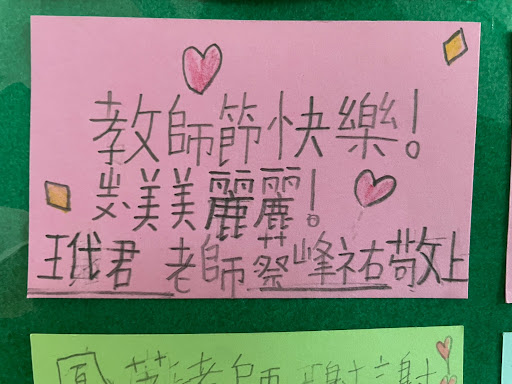 教師節快樂!
美美麗麗!
王代君 老師蔡峰祐敬上
老師 謝謝